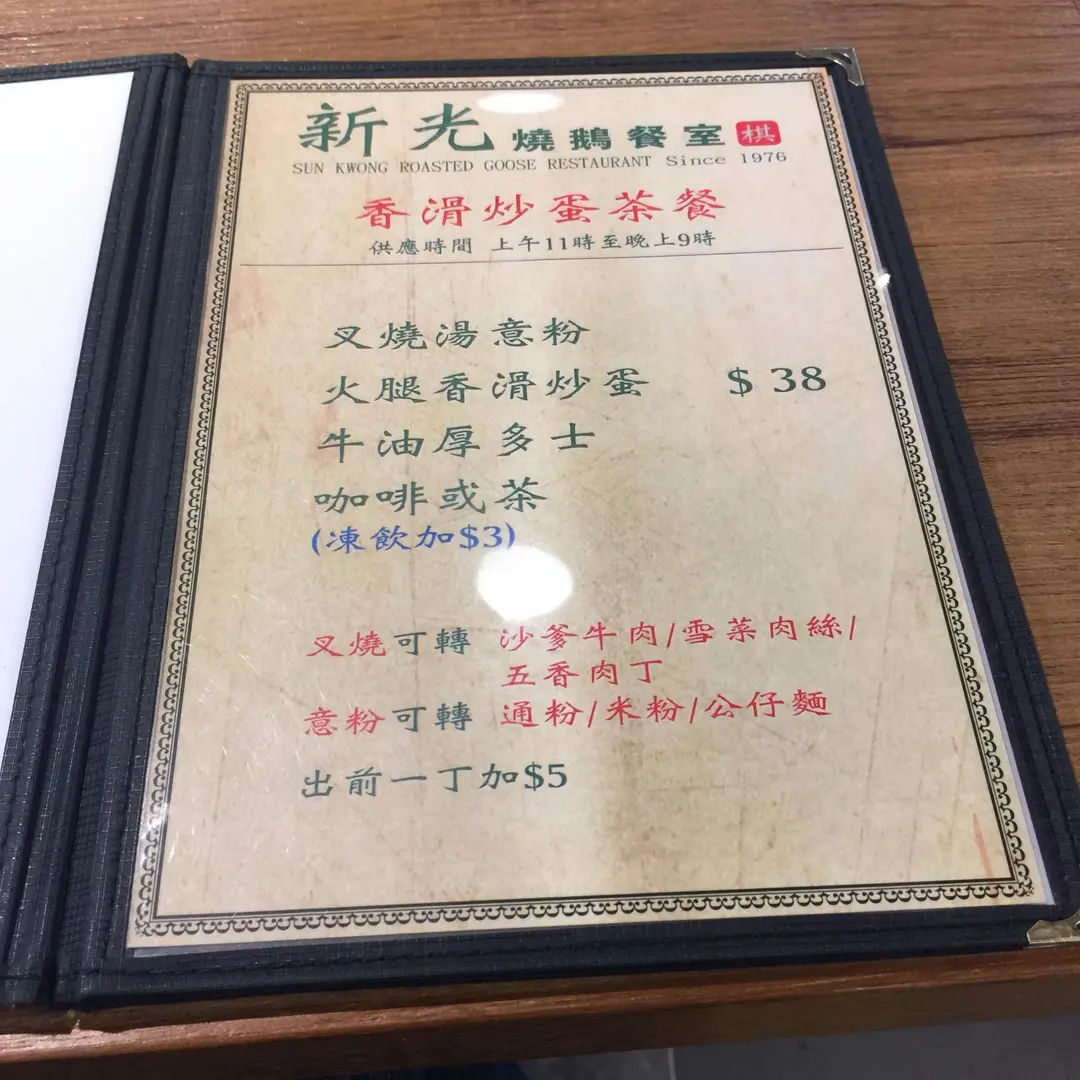 新光燒鵝餐室 棋
SUN KWONG ROASTED GOOSE RESTAURANT Since 1976
香滑炒蛋茶餐
供應時間 上午11時至晚上9時
叉燒湯意粉
火腿香滑炒蛋 $ 38
牛油厚多士
咖啡或茶
(凍飲加$3)
叉燒可轉 沙爹牛肉/雪菜肉絲/
五香肉丁
意粉可轉 通粉/米粉/公仔麵
出前一丁加$5